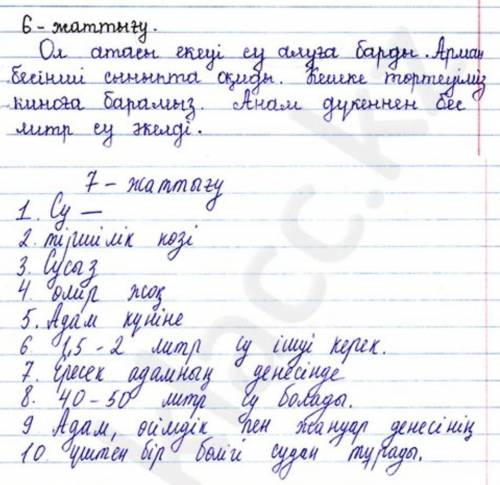 6 - жаттығу.
Ол атасы екеуі су алуға барды. Арман
бесінші сыныпта оқиды. Кешке төртеуіміз
киноға барамыз. Анам дүкеннен бес
литр су әкелді.
7 - жаттығу
1. Су —
2. тіршілік көзі
3. Сусыз
4. өмір жоқ
5. Адам күніне
6. 1,5 - 2 литр су ішуі керек.
7. Ересек адамның денесінде
8. 40 - 50 литр су болады.
9 Адам, өсімдік пен жануар денесінің
10 үштен бір бөлігі судан тұрады.
классс.kz